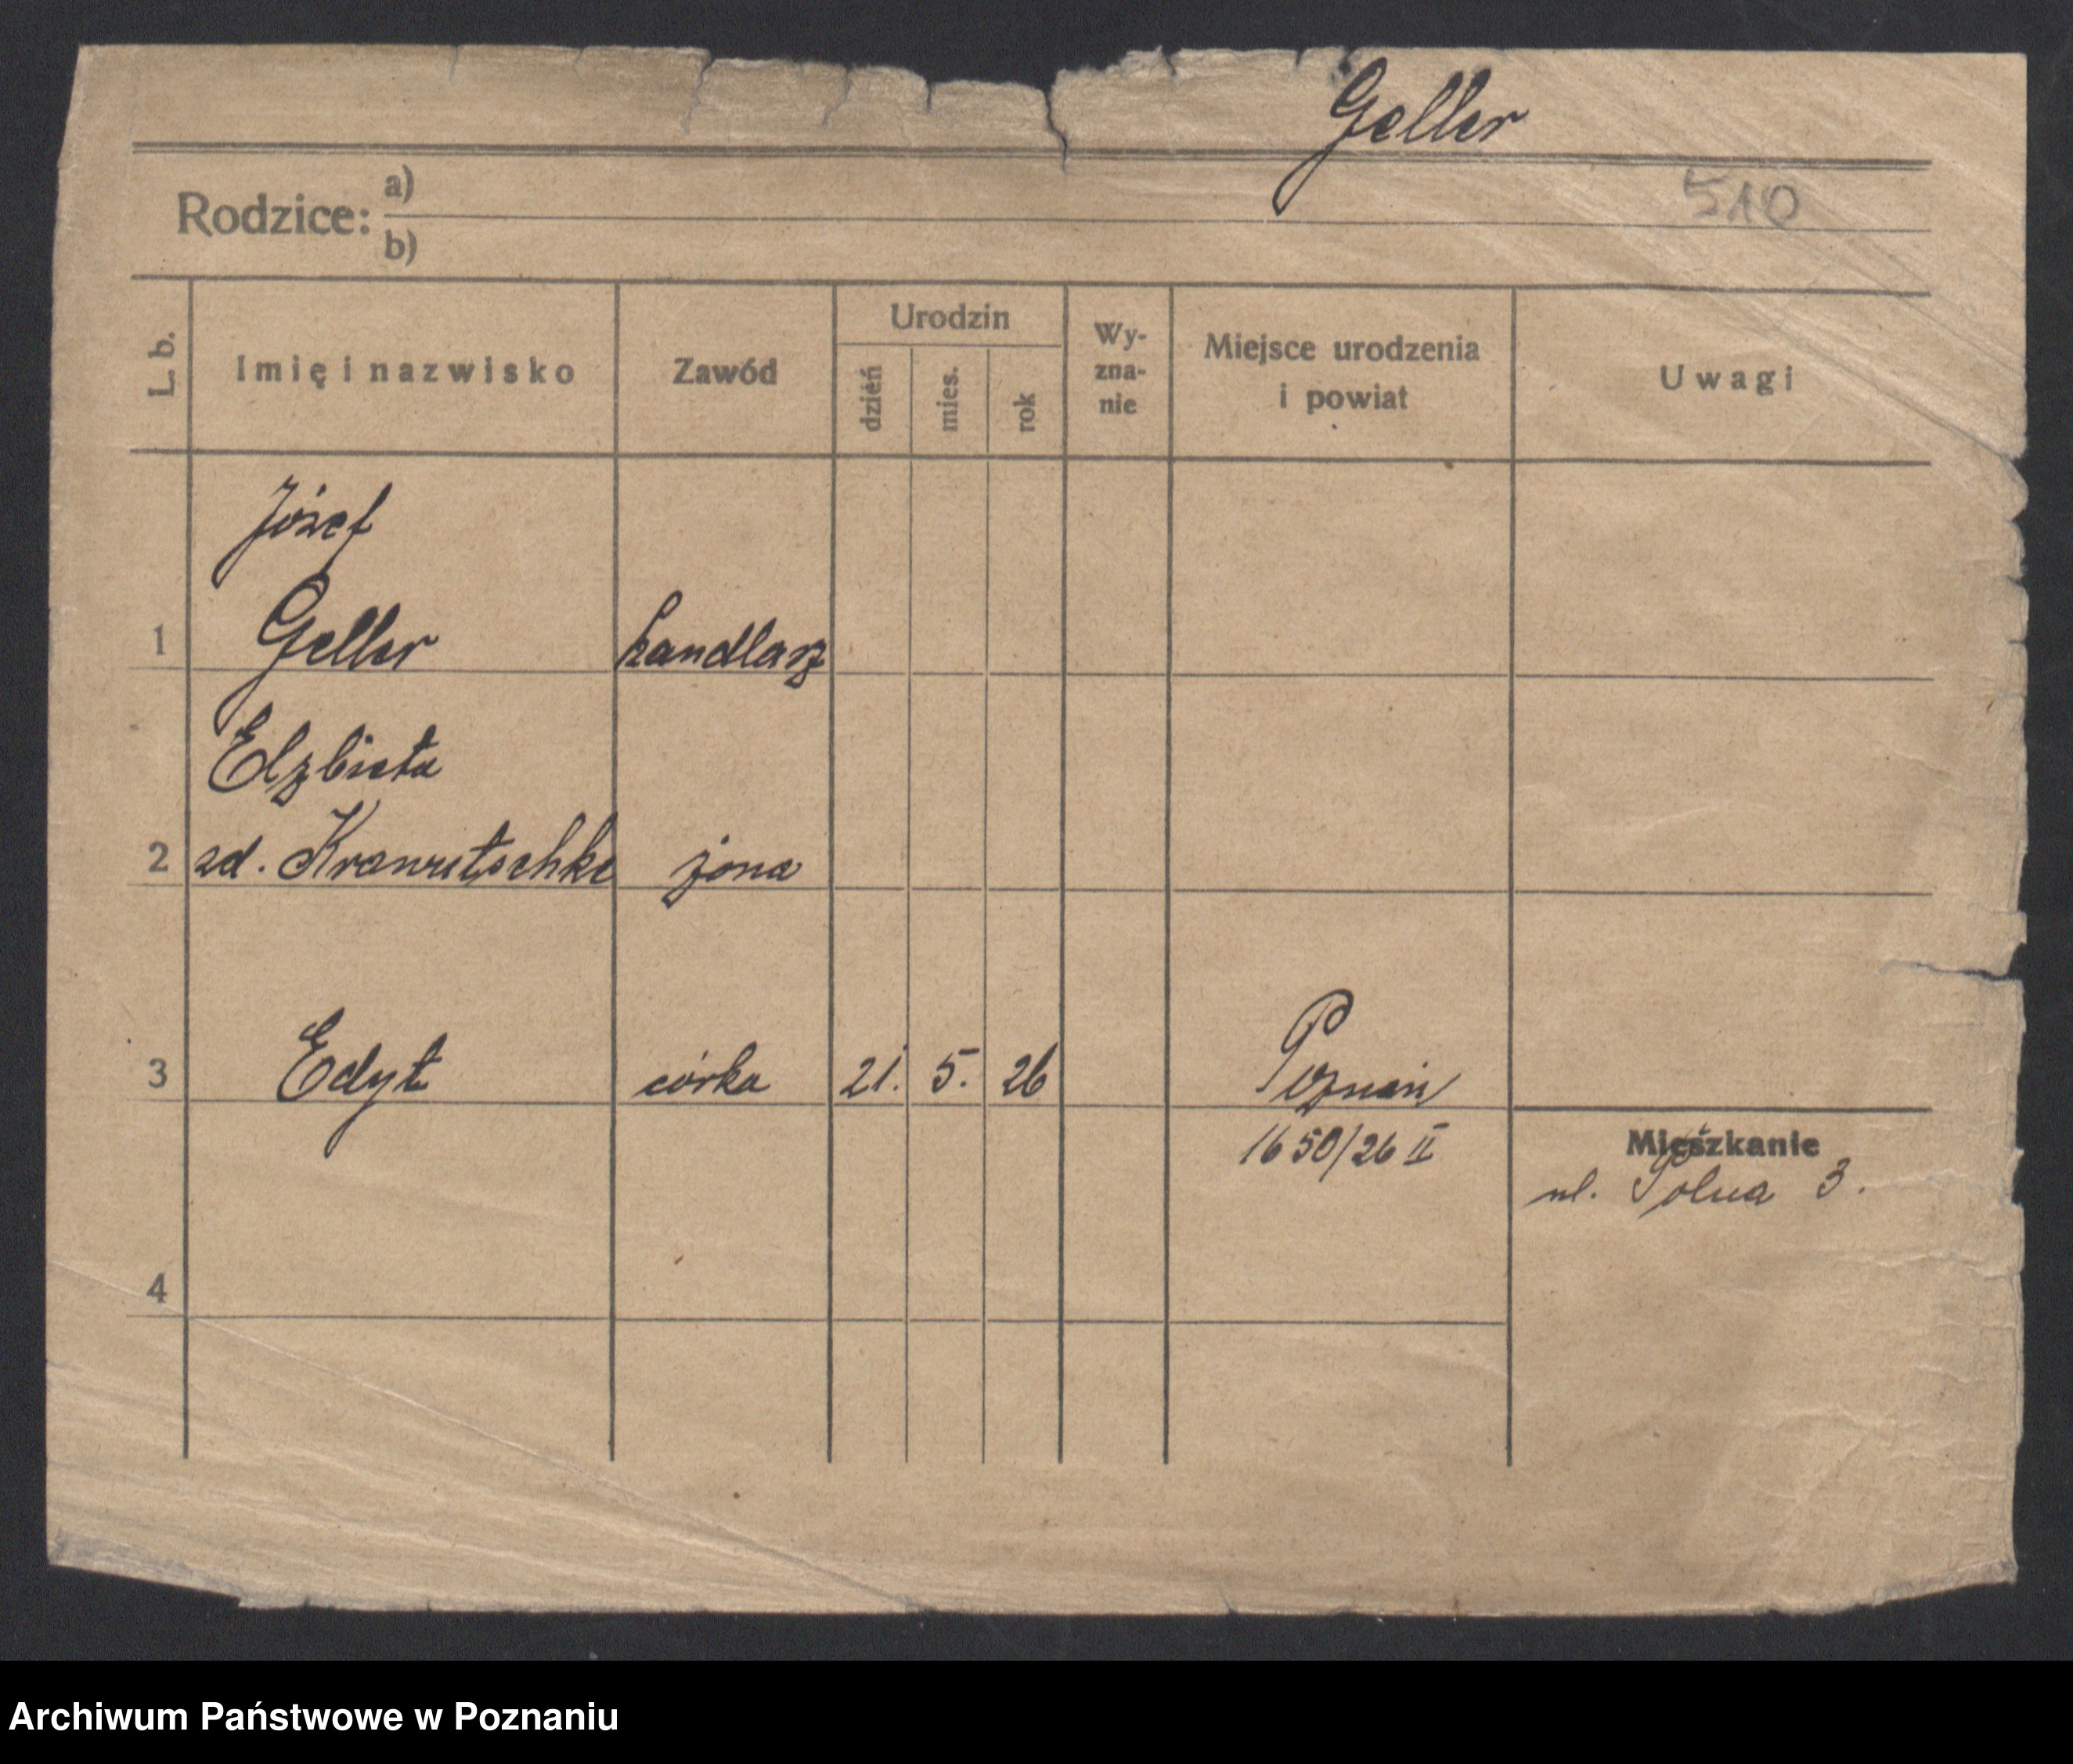 Geller
510
Rodzice: a)
b)
L. b.
Imię i nazwisko
Zawód
Urodzin
dzień
mies.
rok
Wy-
zna-
nie
Miejsce urodzenia
i powiat
Uwagi
Józef
1 Geller handlarz
Elżbieta
2 zd. żona
3 Edyt córka 21. 5. 26 Poznań
1650/26 II
Mieszkanie
ul. Polna 3.
4
Archiwum Państwowe w Poznaniu